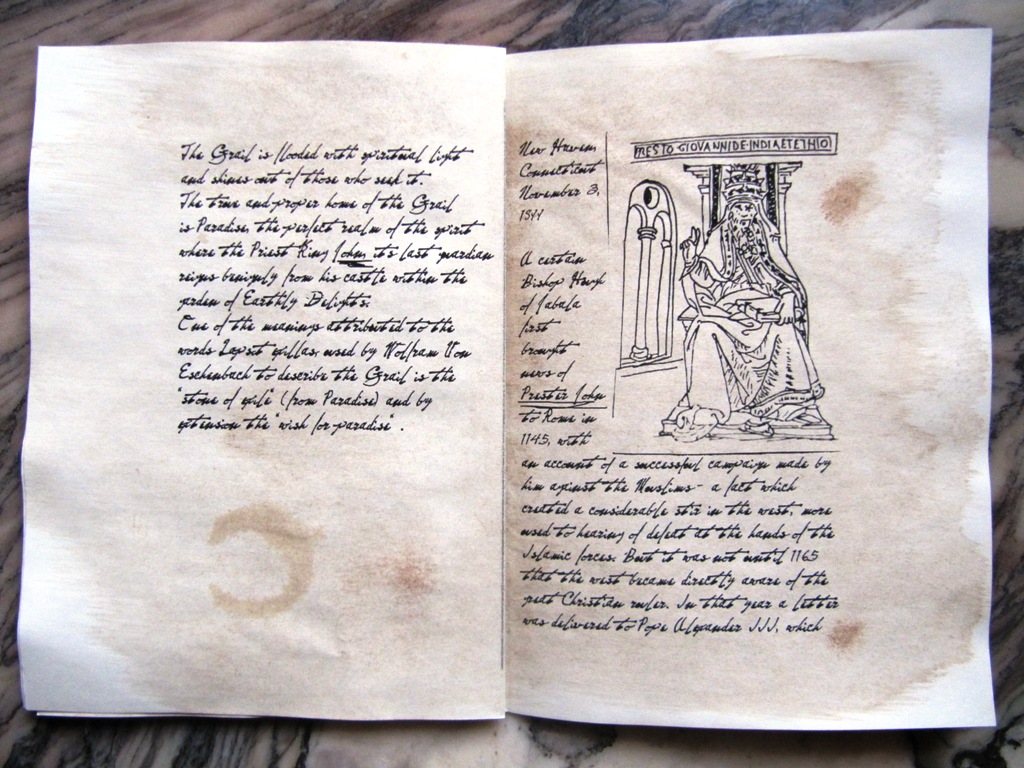 The Grail is flooded with spiritual light
and shines out of those who seek it.
The true and proper home of the Grail
is Paradise, the perfect realm of the spirit
where the Priest King John, it's last guardian
reigns benignly from his castle within the
garden of Earthly Delights.
One of the meanings attributed to the
words Lapsit exillas, used by Wolfram Von
Eschenbach to describe the Grail is the
"stone of exile" (from Paradise) and by
extension the "wish for paradise".
New Haven,
Connecticut
November 3,
A certain
Bishop Hugh
of Jabala
first
brought
news of
Prester John
to Rome in
1145, with
PRESTO GIOVANNI DE·INDIA ET ETHIO
an account of a successful campaign made by
him against the Muslims - a fact which
created a considerable stir in the west, more
used to hearing of defeat at the hands of the
Islamic forces. But it was not until 1165
that the west became directly aware of the
great Christian ruler. In that year a letter
was delivered to Pope Alexander III, which